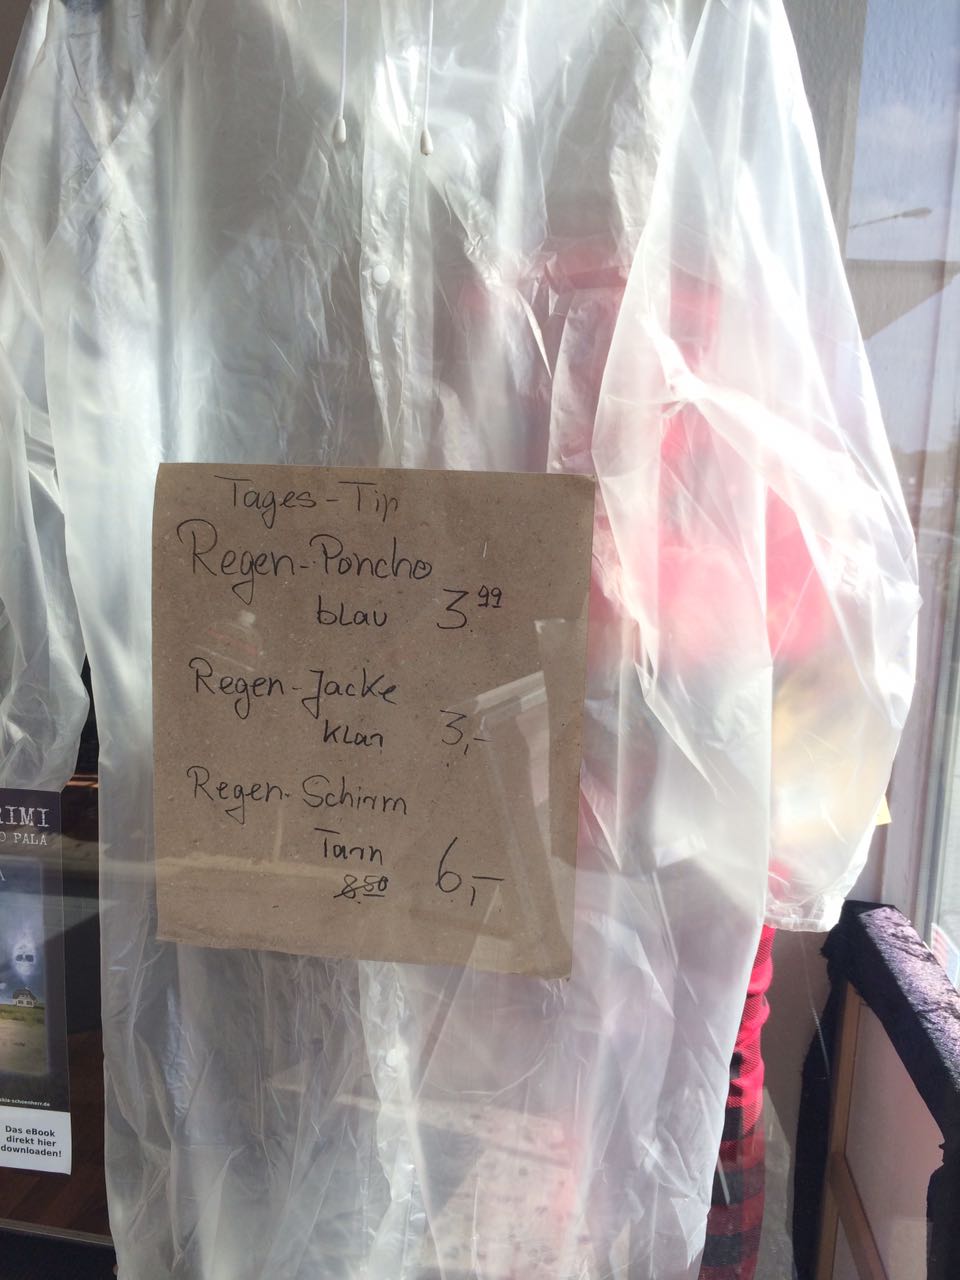 Tages-Tip
Regen-Poncho
blau 3.99
Regen-Jacke
klar 3,-
Regen-Schirm
Tarn
8.50 6,-
RIMI
O PALA
A
kia-schoenherr.de
Das eBook
direkt hier
downloaden!